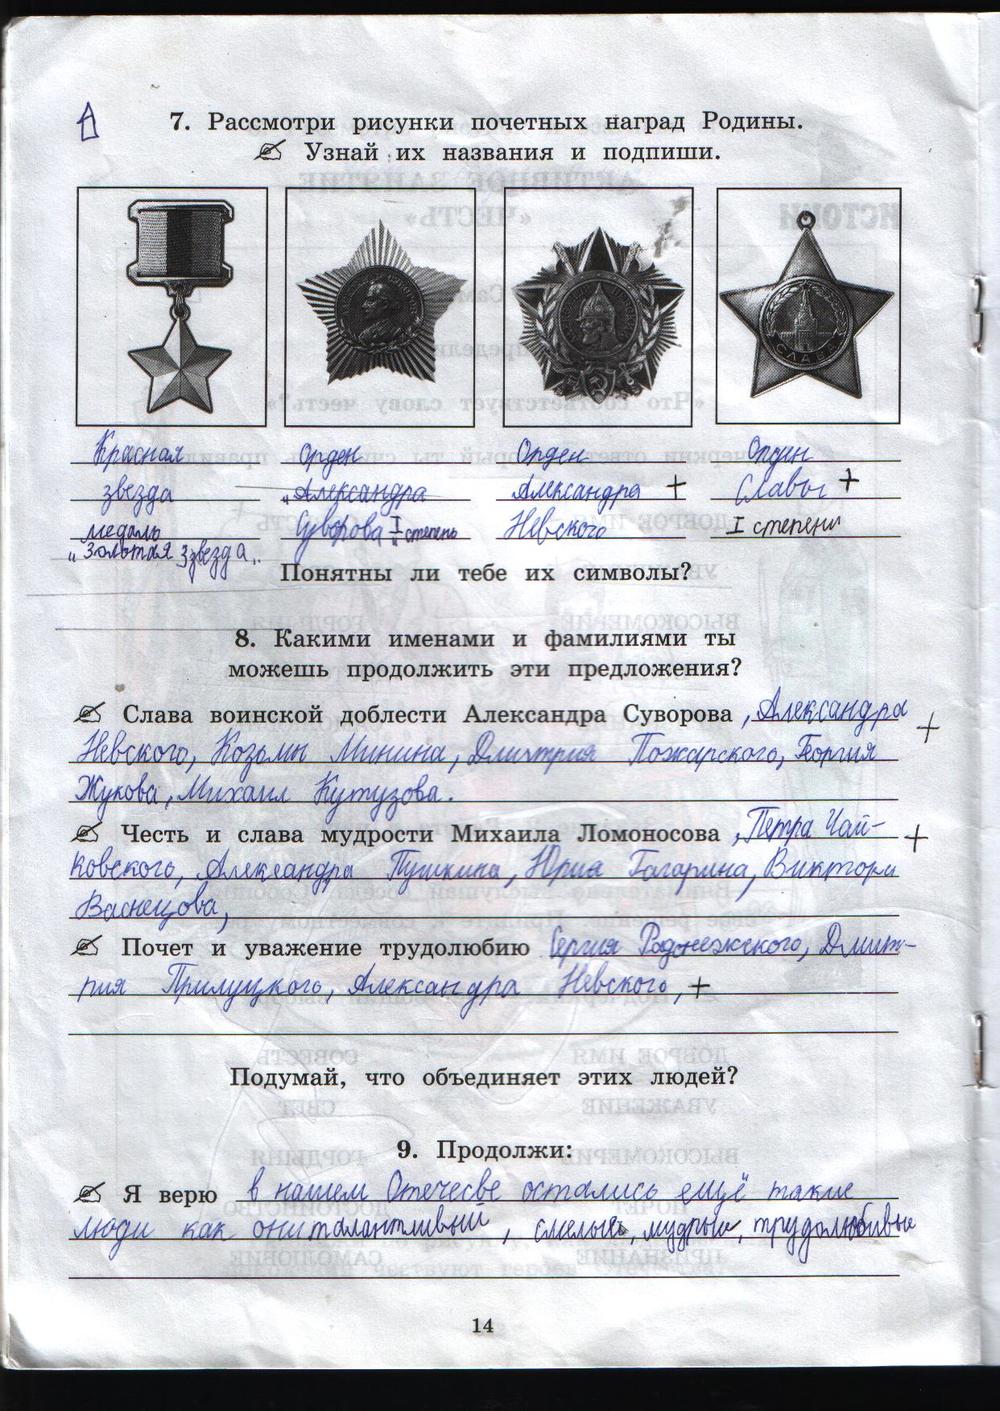 7. Рассмотри рисунки почетных наград Родины.
Узнай их названия и подпиши.
СЛАВА
Красная
звезда
медаль
„Золотая Ззвезда„
Орден
„Александра
Суворова I степень
Орден
Александра +
Невского
Орден
Славы +
I степени
Понятны ли тебе их символы?
8. Какими именами и фамилиями ты
можешь продолжить эти предложения?
Слава воинской доблести Александра Суворова , Александра
Невского, Козьмы Минина, Дмитрия Пожарского, Георгия +
Жукова, Михаил Кутузова.
Честь и слава мудрости Михаила Ломоносова , Петра Чай- +
ковского, Александра Пушкина, Юрия Гагарина, Виктора
Васнецова,
Почет и уважение трудолюбию Сергия Радонежского, Дмит-
рия Прилуцкого, Александра Невского, +
Подумай, что объединяет этих людей?
9. Продолжи:
Я верю в нашем Отечесве остались ещё такие
люди как они талантливый, смелые, мудрые, трудолюбивые
14